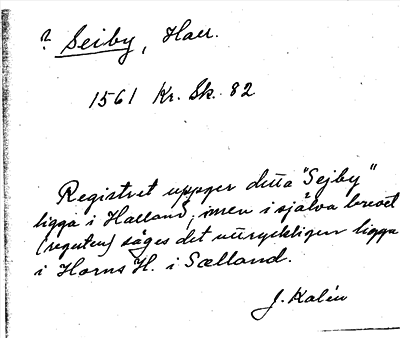 ? Seiby, Hall.
1561 Kr. Sk. 82
Registret uppger detta "Sejby"
ligga i Halland, men i själva brevet
säges det uttryckligen ligga
i Horns H. i Sælland.
J. Kalén